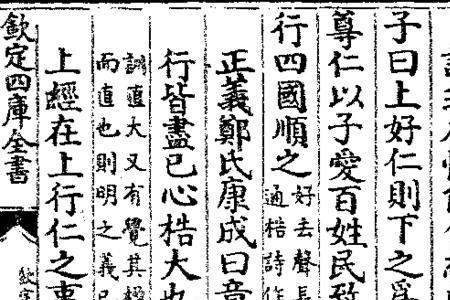 子曰上好仁則下之爲
尊仁以子愛百姓民致
行四國順之
好去聲長
通梏詩作
正義鄭氏康成曰章
行皆盡己心梏大也
訓直大又有覺其
而直也則明之義已
上經在上行仁之事
欽定四庫全書
欽定